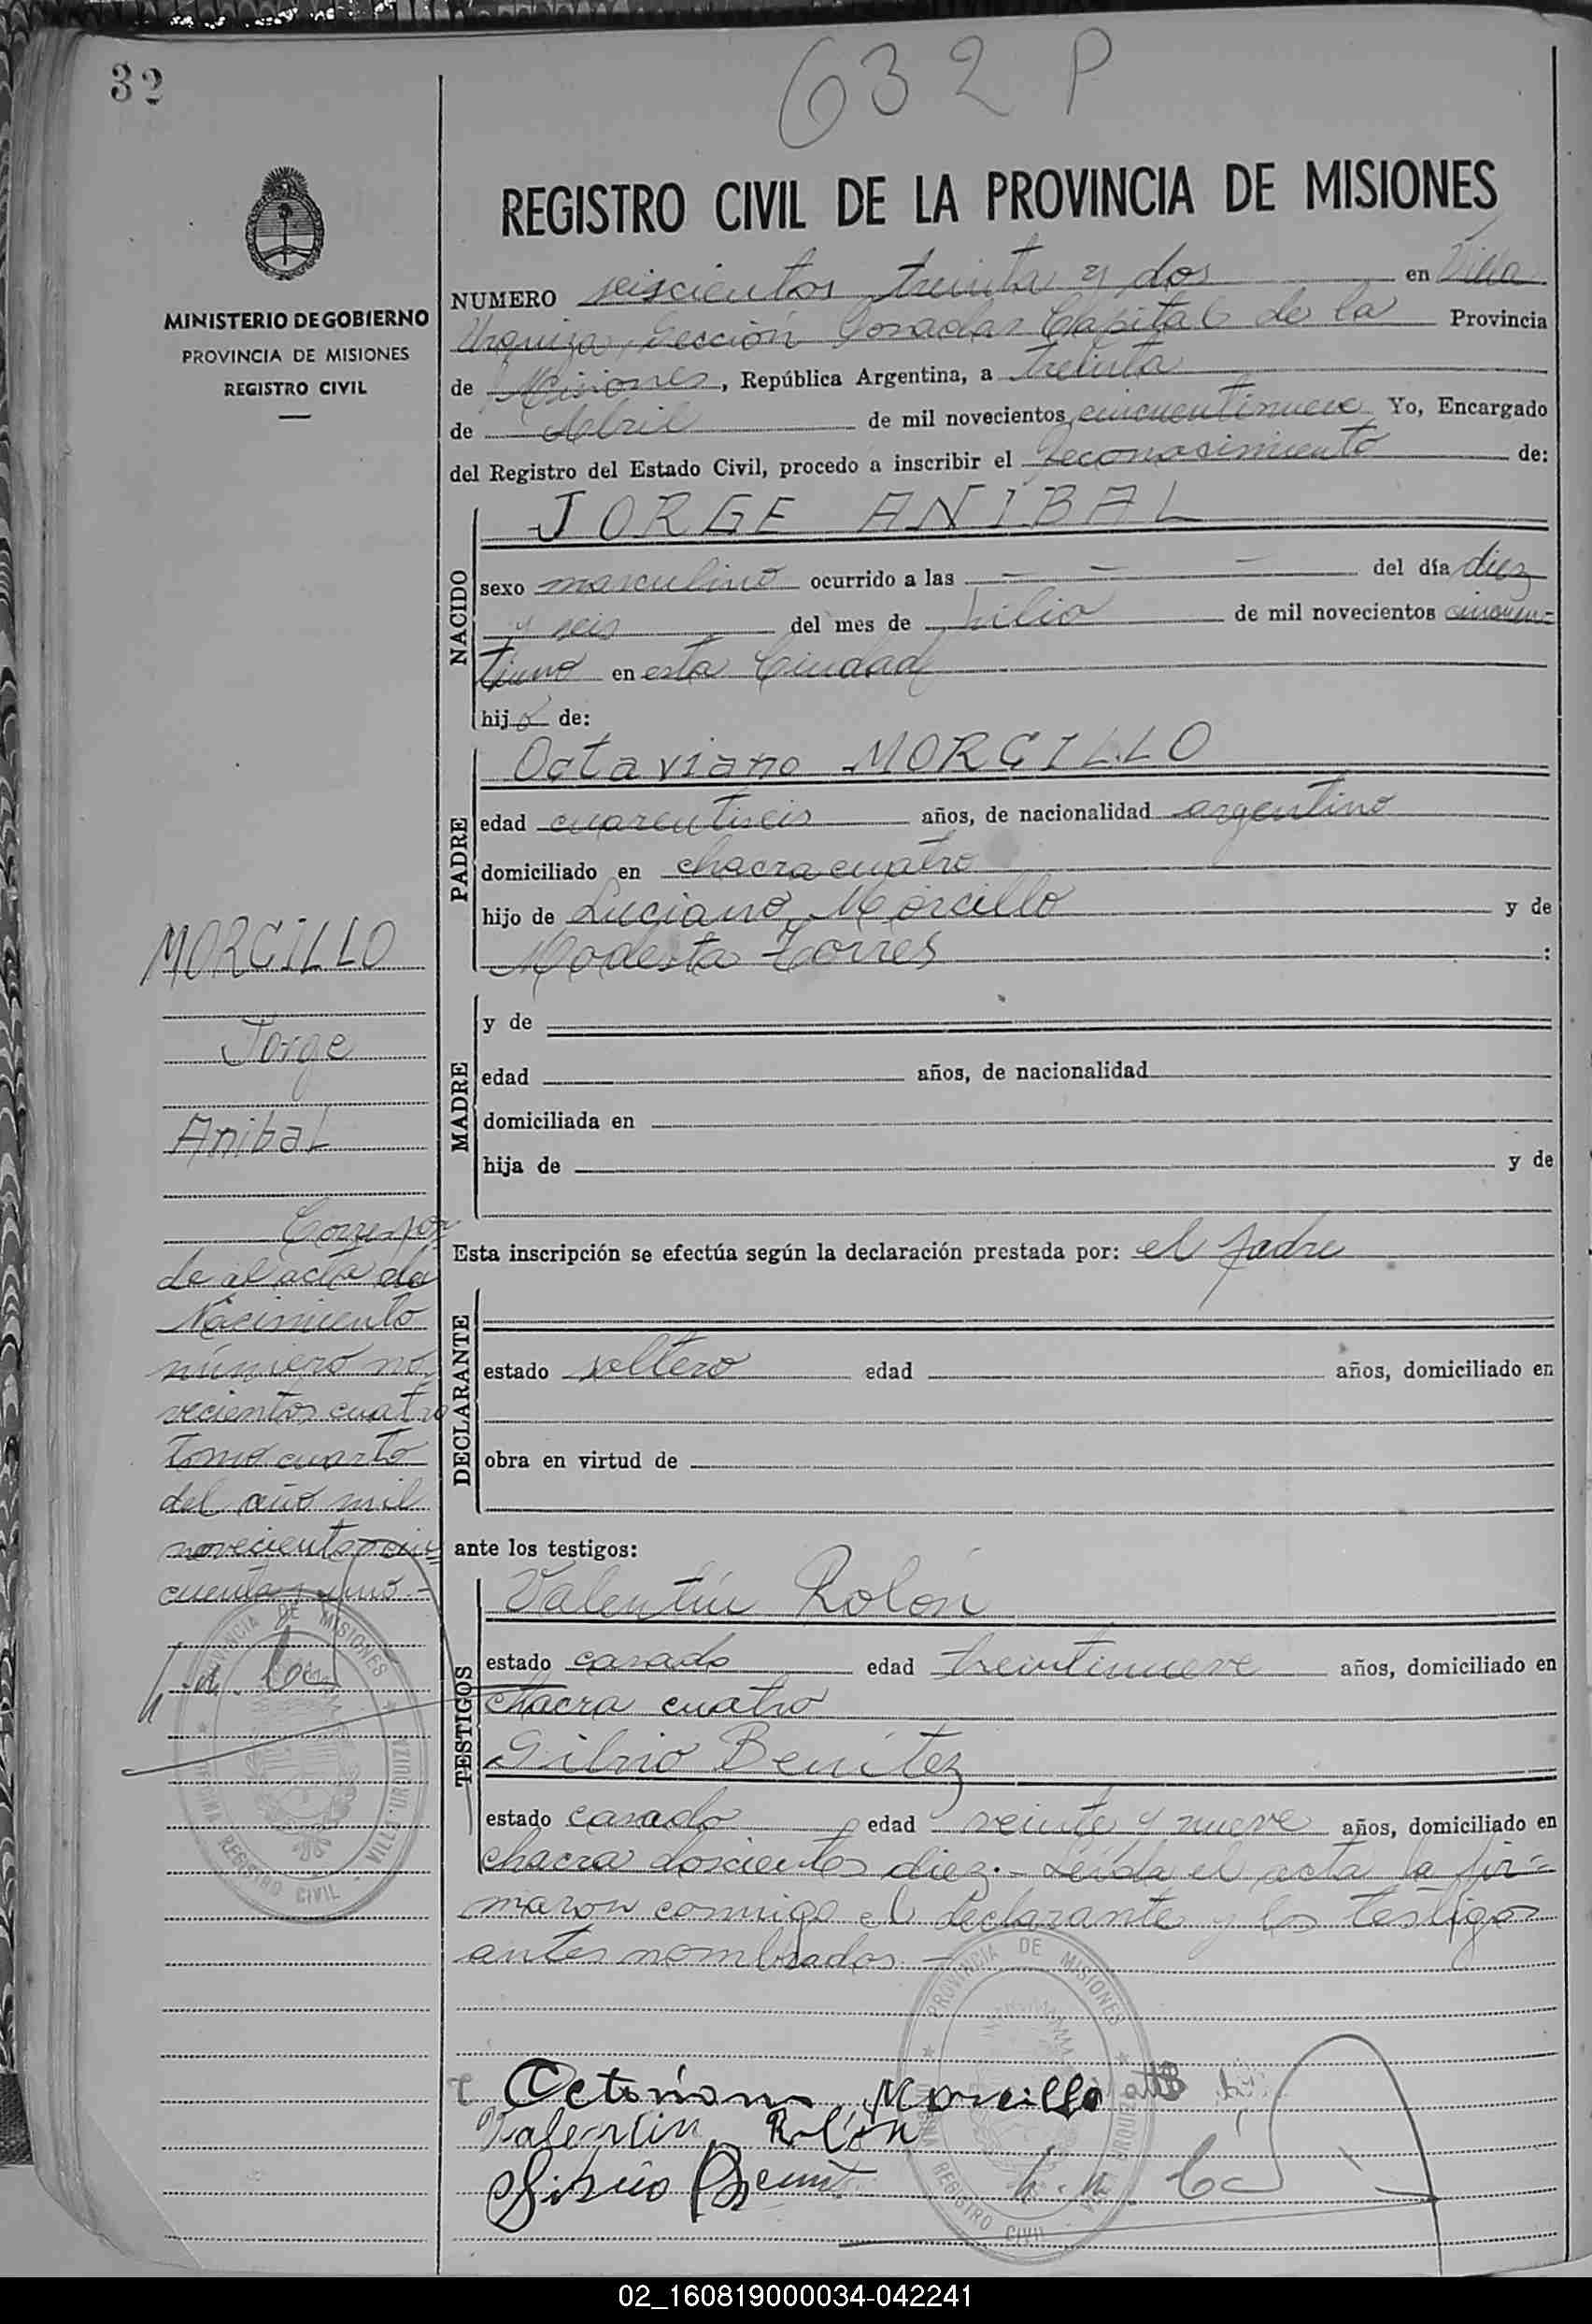 32
632 P
MINISTERIO DE GOBIERNO
PROVINCIA DE MISIONES
REGISTRO CIVIL
REGISTRO CIVIL DE LA PROVINCIA DE MISIONES
NUMERO seiscientos treinta y dos en Villa
Urquiza, Sección Posadas Capital de la Provincia
de Misiones, República Argentina, a treinta
de Abril de mil novecientos cincuentinueve Yo, Encargado
del Registro del Estado Civil, procedo a inscribir el Reconocimiento de:
NACIDO
JORGE ANIBAL
sexo masculino ocurrido a las — — — del día diez
y seis del mes de Julio de mil novecientos cincuen-
tiuno en esta Ciudad
hijo de:
PADRE
Octaviano MORCILLO
edad cuarentiseis años, de nacionalidad argentino
domiciliado en chacra cuatro
hijo de Luciano Morcillo y de
Modesta Torres :
MADRE
y de
edad años, de nacionalidad
domiciliada en
hija de y de
Esta inscripción se efectúa según la declaración prestada por: el padre
DECLARANTE
estado soltero edad años, domiciliado en
obra en virtud de
ante los testigos:
TESTIGOS
Valentín Rolón
estado casado edad treintinueve años, domiciliado en
chacra cuatro
Silvio Benítez
estado casado edad veinte y nueve años, domiciliado en
chacra doscientos diez.- Leída el acta la fir=
maron conmigo el declarante y los testigos
antes nombrados.-
MORCILLO
Jorge
Anibal
Correspon
de al acta de
Nacimiento
número no
vecientos cuatro
tomo cuarto
del año mil
novecientos cin=
cuenta y uno.-
PROVINCIA DE MISIONES
VILLA URQUIZA
REGISTRO CIVIL
Octaviano Morcillo
Valentin Rolón
Silvio Benit
PROVINCIA DE MISIONES
REGISTRO CIVIL
02_160819000034-042241